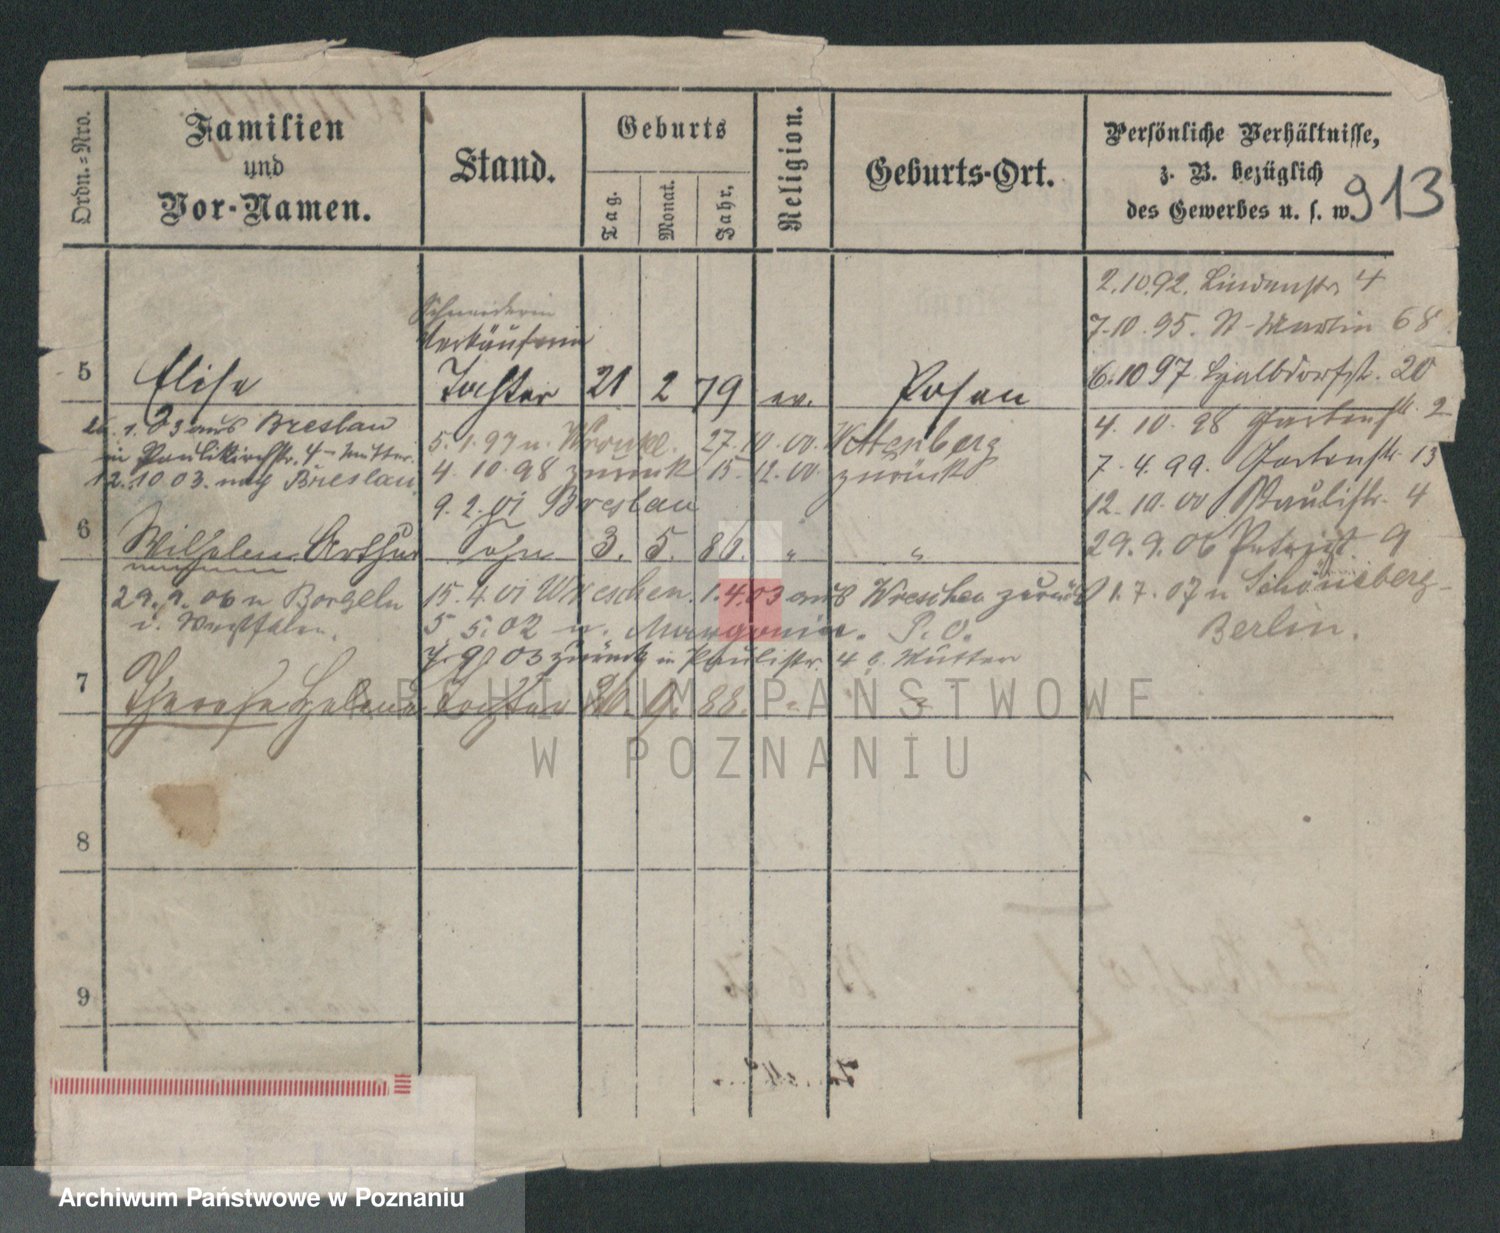 Ordn.=Nro.
Familien
und
Vor-Namen.
Stand.
Geburts
Tag.
Monat.
Jahr.
Religion.
Geburts-Ort.
Persönliche Verhältnisse,
z. B. bezüglich
des Gewerbes u. s. w.
913
2.10.92. Lindenstr. 4
7.10.95. St. Martin 68
Schneiderin
Verkäuferin
5 Elise Tochter 21 2 79 ev. Posen
6.10 97 Halbdorfst. 20
26.1.03 aus Breslau
in Paulikirchstr. 4 - Mutter.
12.10 03. nach Breslau
5.1.97 n. Wronke. 27.10.00. Wittenberg
4.10.98 zurück 15.12.00 zurück
9.2.01 Breslau
4.10.98 Gartenstr. 2
7.4.99. Gartenstr. 13
12.10.00 Paulistr. 4
6 Wilhelm Arthur Sohn 3. 5. 86. " "
29.9.06 Patristr. 9
29.9.06 n Borgeln
i. Westfalen.
15.4.01 Wreschen. 1.4.03 aus Wreschen zurück
5.5.02 n. Margonin. P. O.
7.9.03 zurück in Paulistr. 4 b. Mutter
1.7.07 n Schöneberg-
Berlin.
7 Therese Helene Tochter 20. 9. 88. " "
8
9
ARCHIWUM PAŃSTWOWE
W POZNANIU
Archiwum Państwowe w Poznaniu